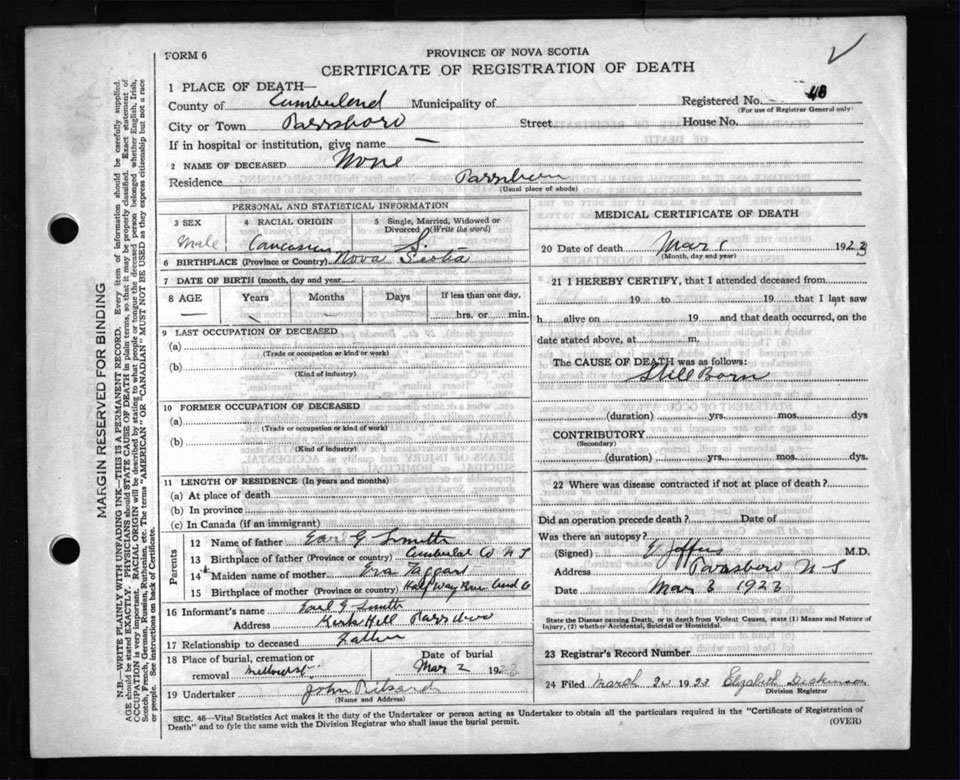 FORM 6
PROVINCE OF NOVA SCOTIA
CERTIFICATE OF REGISTRATION OF DEATH
1 PLACE OF DEATH—
County of Cumberland Municipality of Registered No. 48
(For use of Registrar General only)
City or Town Parrsboro Street House No.
If in hospital or institution, give name —
2 NAME OF DECEASED None
Residence Parrsboro
(Usual place of abode)
PERSONAL AND STATISTICAL INFORMATION
3 SEX 4 RACIAL ORIGIN 5 Single, Married, Widowed or Divorced (Write the word)
Male Caucasian S.
6 BIRTHPLACE (Province or Country) Nova Scotia
7 DATE OF BIRTH (month, day and year)
8 AGE Years Months Days If less than one day,
hrs. or min.
9 LAST OCCUPATION OF DECEASED
(a)
(Trade or occupation or kind or work)
(b)
(Kind of industry)
10 FORMER OCCUPATION OF DECEASED
(a)
(Trade or occupation or kind of work)
(b)
(Kind of industry)
11 LENGTH OF RESIDENCE (In years and months)
(a) At place of death
(b) In province
(c) In Canada (if an immigrant)
Parents
12 Name of father Earl G Smith
13 Birthplace of father (Province or country) Cumberland Co N S
14 Maiden name of mother Eva Taggart
15 Birthplace of mother (Province or country) Half Way River Cumb Co
16 Informant's name Earl G Smith
Address Kirk Hill Parrsboro
17 Relationship to deceased Father
18 Place of burial, cremation or removal Date of burial
Mar 2 1923
19 Undertaker John
(Name and Address)
MEDICAL CERTIFICATE OF DEATH
20 Date of death Mar 1 1923
(Month, day and year)
21 I HEREBY CERTIFY, that I attended deceased from
19 to 19 that I last saw
h alive on 19 and that death occurred, on the
date stated above, at m.
The CAUSE OF DEATH was as follows:
Still Born
(duration) yrs. mos. dys
CONTRIBUTORY
(Secondary)
(duration) yrs. mos. dys.
22 Where was disease contracted if not at place of death?
Did an operation precede death? Date of
Was there an autopsy?
(Signed) Jeffers M.D.
Address Parrsboro N S
Date Mar 3 1923
State the Disease causing Death, or in death from Violent Causes, state (1) Means and Nature of Injury, (2) whether Accidental, Suicidal or Homicidal.
23 Registrar's Record Number
24 Filed March 2 1923 Elizabeth Dickinson
Division Registrar
SEC. 46—Vital Statistics Act makes it the duty of the Undertaker or person acting as Undertaker to obtain all the particulars required in the "Certificate of Registration of
Death" and to fyle the same with the Division Registrar who shall issue the burial permit. (OVER)
MARGIN RESERVED FOR BINDING
N.B.—WRITE PLAINLY WITH UNFADING INK—THIS IS A PERMANENT RECORD. Every item of information should be carefully supplied.
AGE should be stated EXACTLY. PHYSICIANS should STATE CAUSE OF DEATH in plain terms, so that it may be properly classified. Exact statement of
OCCUPATION is very important. RACIAL ORIGIN will be described by stating to what people or tongue the deceased person belonged whether English, Irish,
Scotch, French, German, Russian, Ruthenian, etc. The terms "AMERICAN" OR "CANADIAN" MUST NOT BE USED as they express citizenship but not a race
or people. See instructions on back of Certificate.